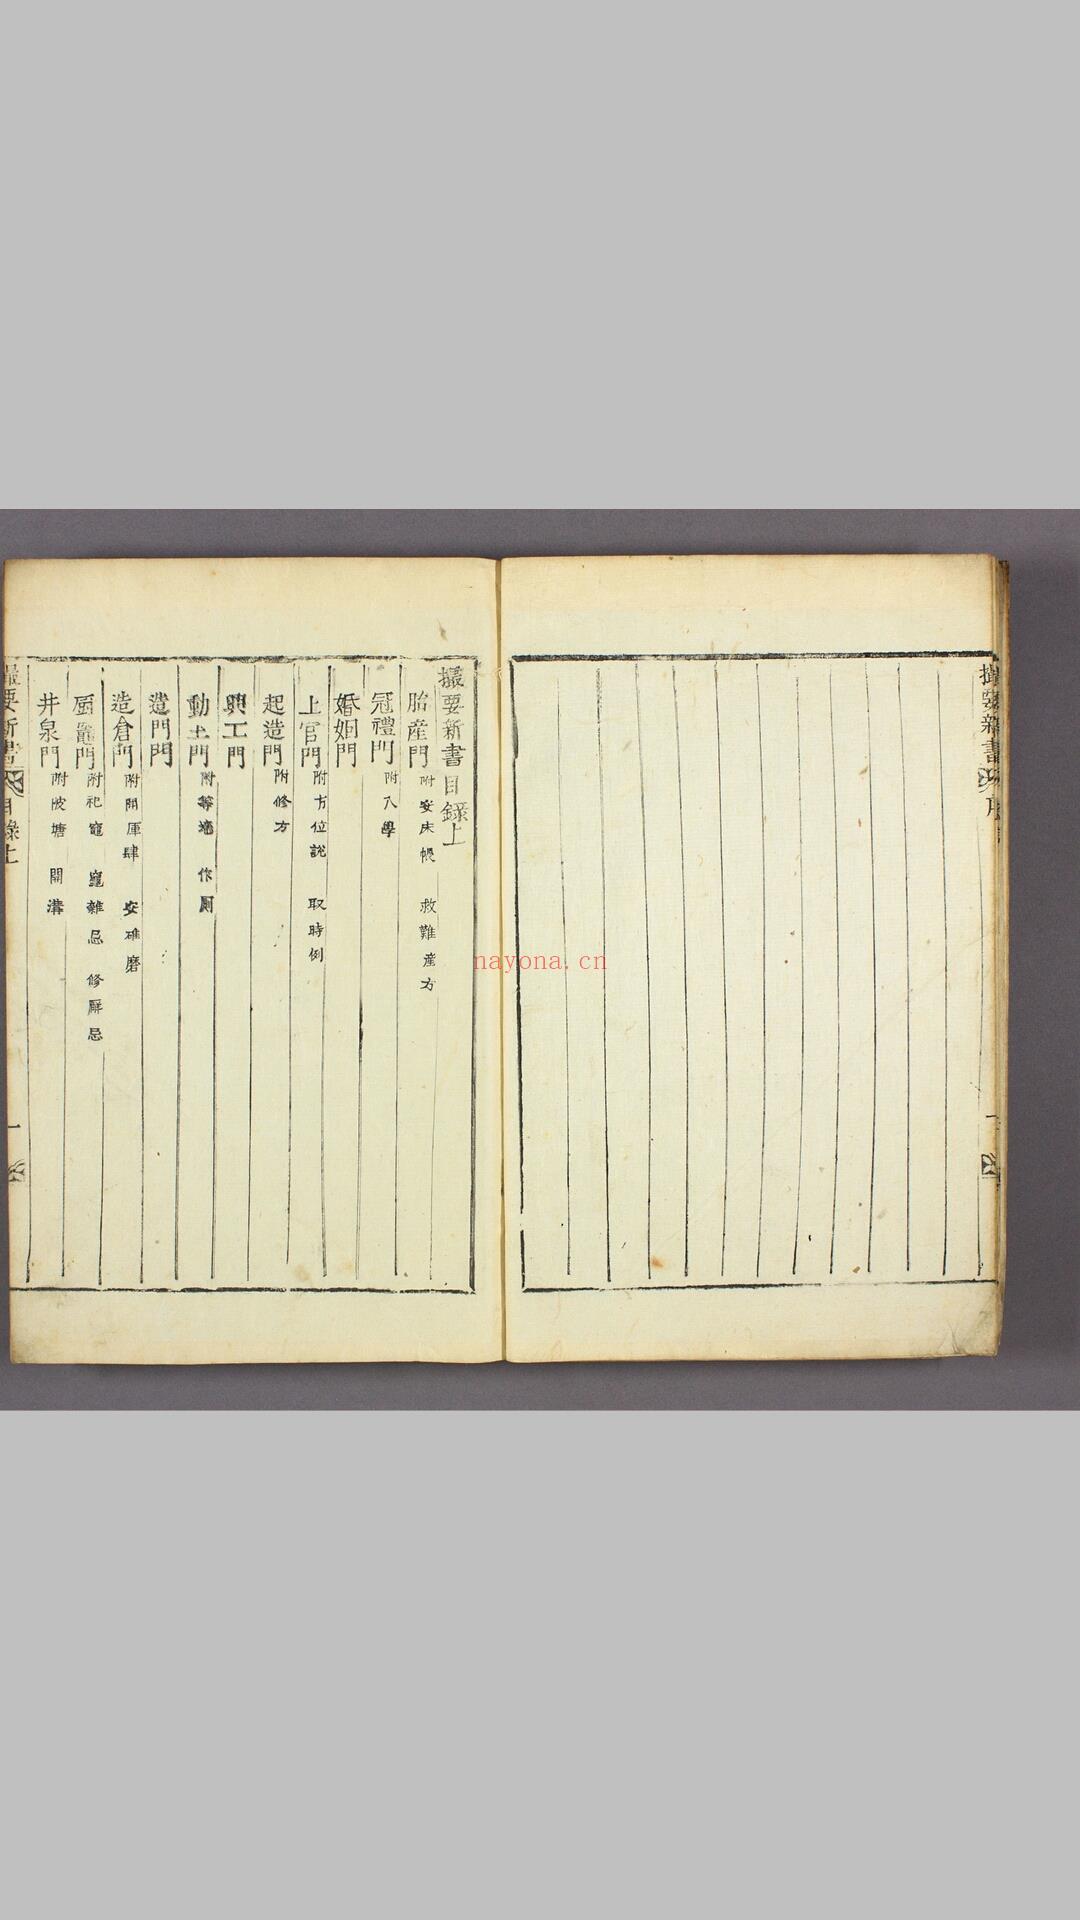 撮要新書
撮要新書目錄上
胎產門 附安床帳 救難産方
冠禮門 附入學
婚姻門
上官門 附方位說 取時例
起造門 附修方
興工門
動土門 附築墻 作厠
造門門
造倉門 附開庫肆 安碓磨
厨竈門 附祀竈 竈雜忌 修厨忌
井泉門 附陂塘 開溝
撮要新書 目錄上 一
nayona.cn